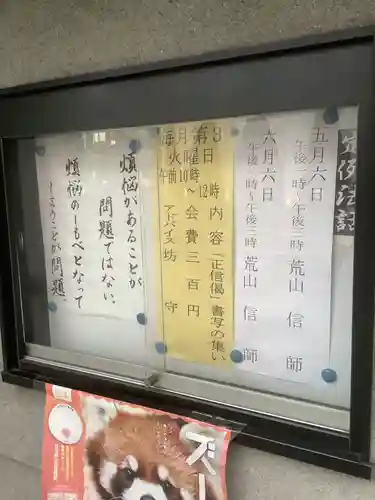 定例法話
五月六日
午後一時〜午後三時 荒山 信 師
六月六日
午後一時〜午後三時 荒山 信 師
内容「正信偈」書写の集い
毎月第3
火曜日
午前10時〜12時
会費三百円
アドバイス 坊守
煩悩があることが
問題ではない、
煩悩のしもべとなって
しまうことが問題。
ズー